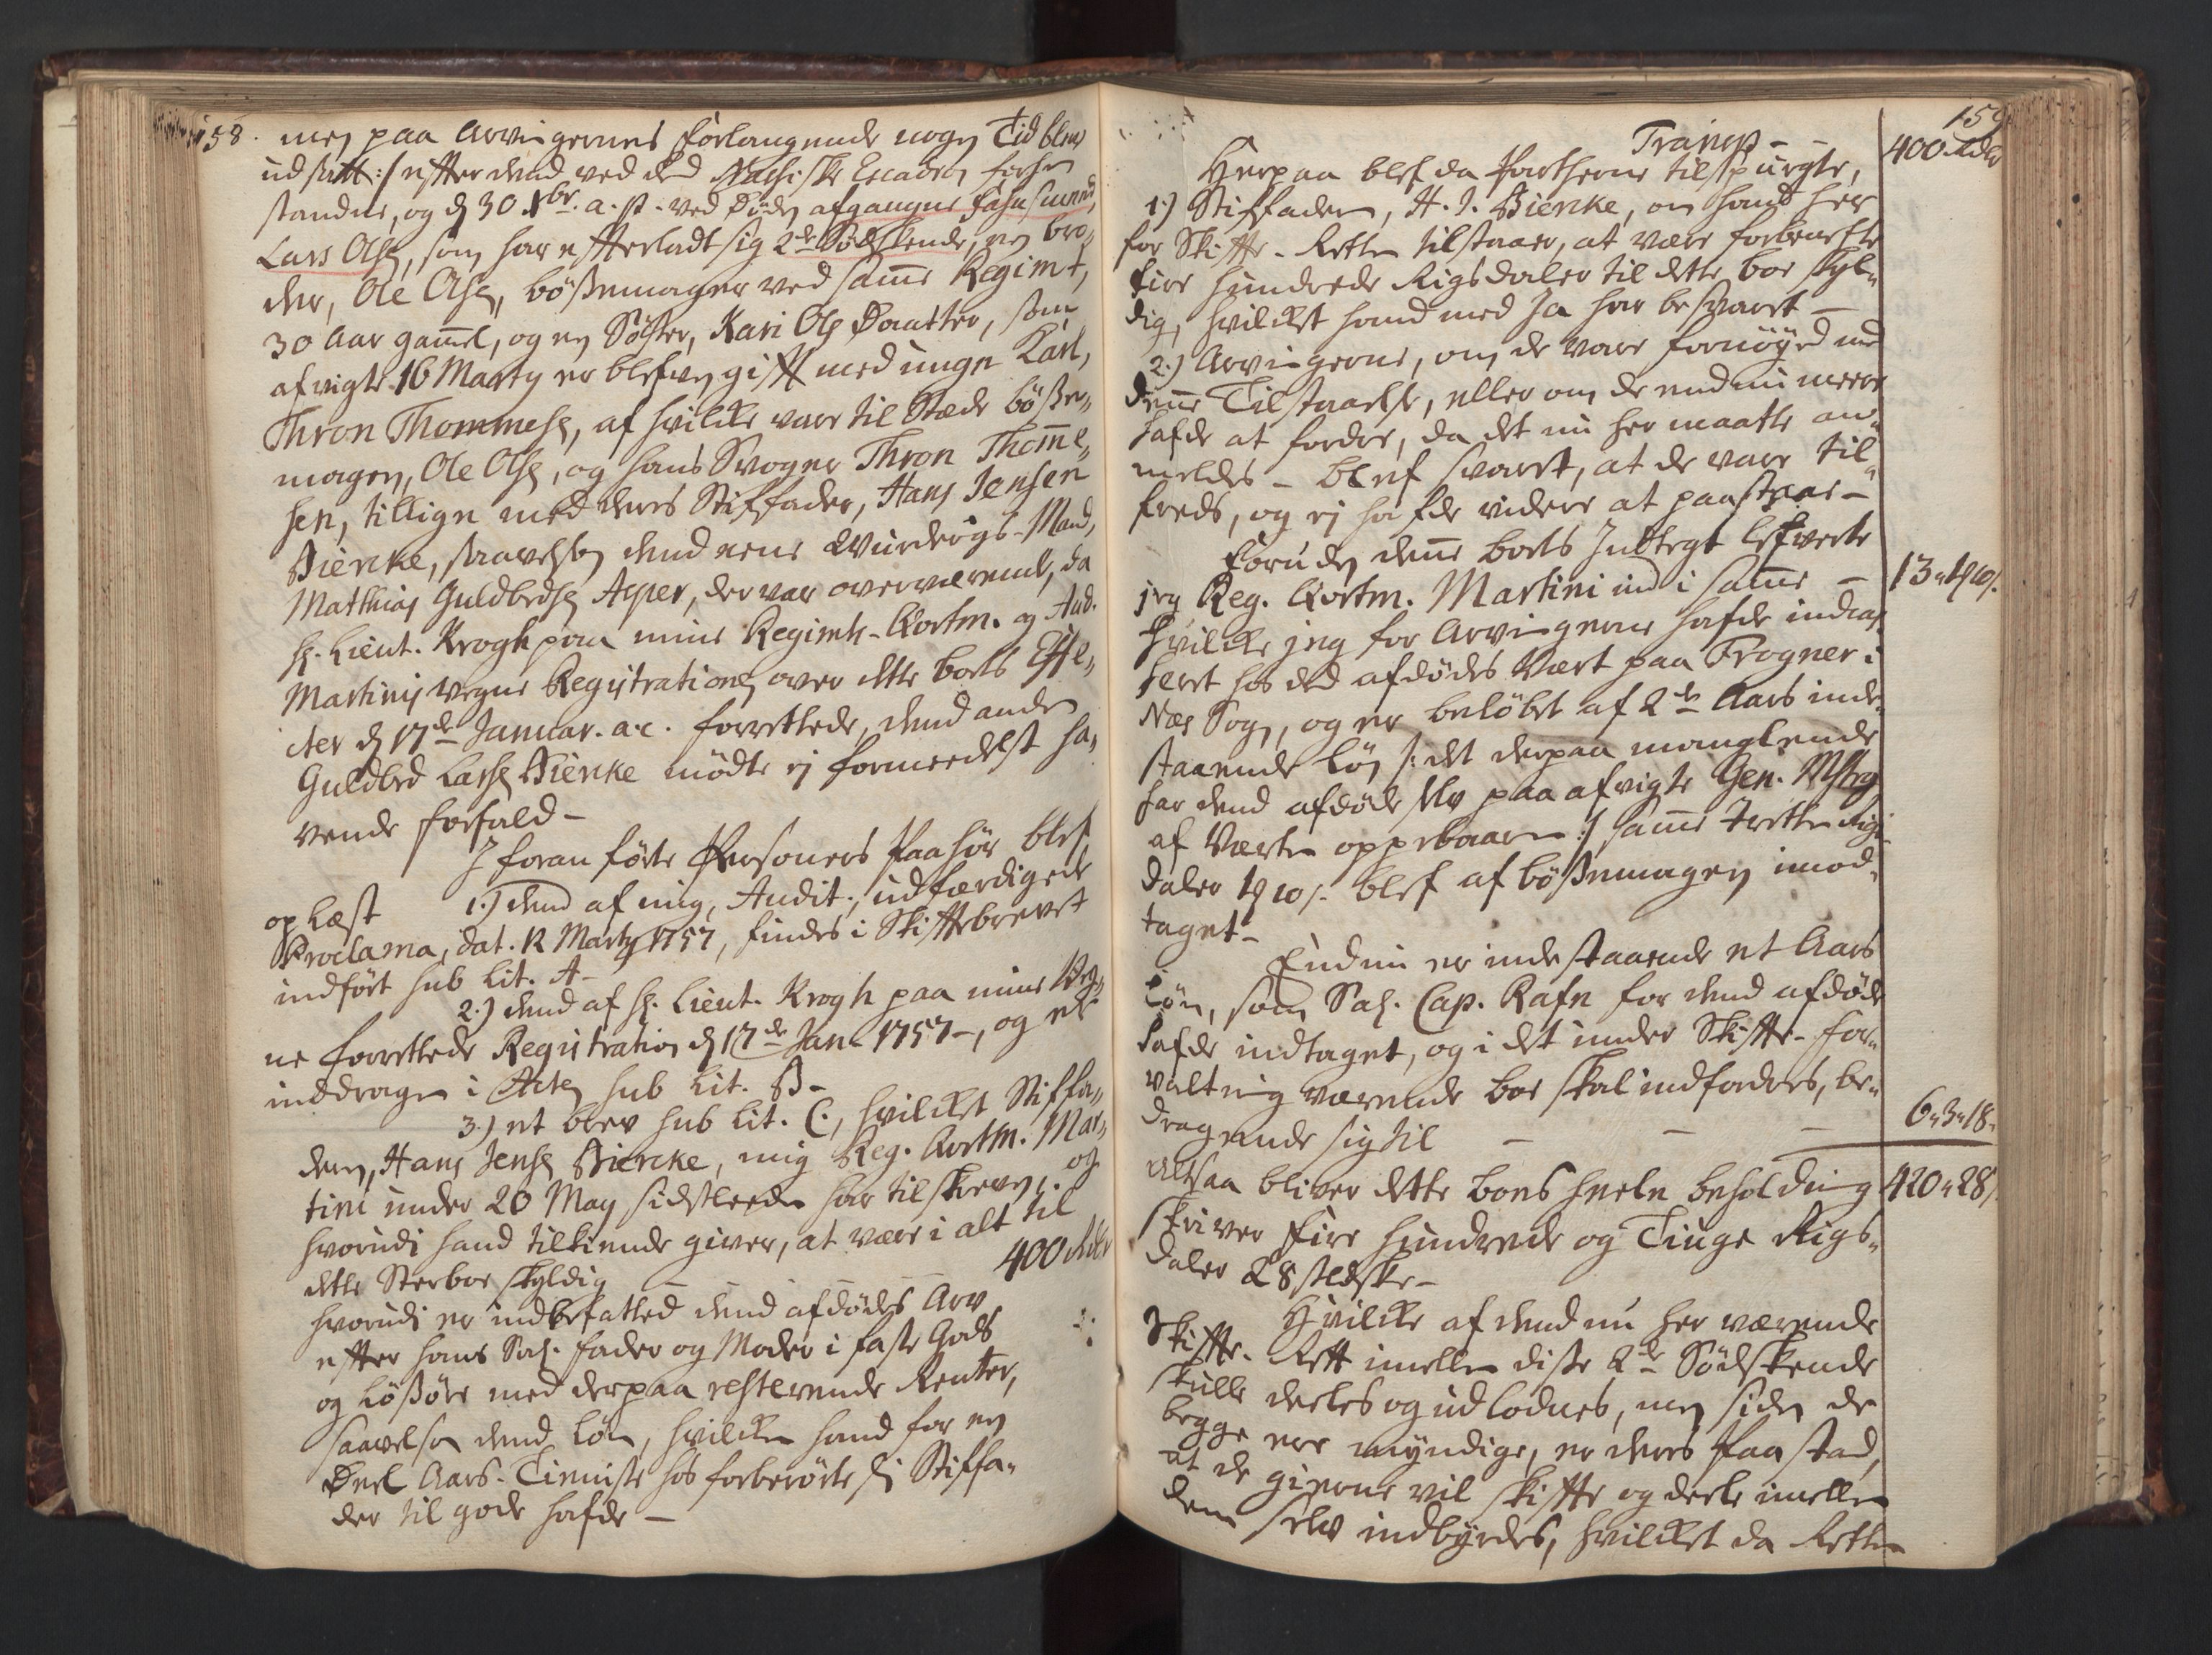 158. men paa Arvingernes forlangende nogen Tid blev
udsatt :/ efter dend ved det Næssiske Escadron forhen
standne, og d. 30 Xbr. a. p. ved Døden afgangne fahnsmed,
Lars Olss., som har efterladt sig 2de Sødskende, en bro„
der, Ole Olss., bøssemager ved samme Regimt,
30 Aar gammel, og en Søster, Kari Ols Daatter, som
afvigte 16 Marty er blefven gift med unge Karl,
Thron Thommess., af hvilke vare til Stæde bøsse„
mageren, Ole Olss., og hans Svoger Thron Thomme„
sen, tillige med deres Stiffader, Hans Jensen
Biercke, saavelsom dend eene Wurderings-Mand,
Matthias Guldbrds. Asper, der var overværende, da
Hr. Lieut. Krogh paa mine Regimts-Qvartm. og Aud.
Martinis vegne Registrationen over dette boets Effe„
cter d. 17de Januar. a.c. forrettede, dend anden
Guldbrd Larss. Biercke mødte ej formeedelst ha„
vende forfald –
I foranførte Persohners Paahør blef
oplæst 1.) dend af mig, Audit., udfærdigede
Proclama, dat. 12 Marty 1757, findes i Skiftebrevet
indført sub Lit. A –
2.) dend af Hr. Lieut. Krogh paa mine Veg„
ne forrettede Registration d. 17de Jan. 1757 –, og er
inddragen i Acten sub Lit. B –
3.) et brev sub Lit. C., hvilket Stiffa„
deren, Hans Jenss. Biercke, mig Reg. Qvartm. Mar„
tini under 20 May sidstleeden har tilskreven, og
hvorudi hand tilkiende giver, at være i alt til
dette Sterboe skyldig – – – 400 Rdlr
hvorudi er indbefatted dend afdødes Arv
efter hans Sal. fader og Moder i faste Gods
og Løsøre med derpaa resterende Renter,
saavelsom dend Løn, hvilken hand for en
Deel Aars-Tieniste hos forberørte sin Stiffa„
der til gode hafde –
159
Transp – – 400 Rdlr
Herpaa blef da Partherne tilspurgte,
1.) Stiffaderen, H. J. Biercke, om hand her
for Skifte-Retten tilstaaer, at være forbemelte
fire hundrede Rigsdaler til dette boe skyl„
dig, hvilket hand med Ja har besvaret –
2.) Arvingerne, om de vare fornøyed med
denne Tilstaaelse, eller om de end nu meere
hafde at fordre, da det nu her maatte an„
meldes – blef svaret, at de vare til„
freds, og ej hafde videre at paastaae –
Foruden denne boets Indtegt lefverte
jeg Reg. Qvartm. Martini ind i samme – 13„ 1 ort 10 s.
hvilke jeg for Arvingerne hafde indcas„
seret hos ded afdødes Vært paa Frogner i
Næs Sogn, og er beløbet af 2de Aars inde„
staaende Løn /: det derpaa manglende
har dend afdøde selv paa afvigte Gen. Mstrg
af Værten oppebaaren :/ samme tretten Rigs„
daler 1 ort 10 s. blef af bøssemageren imod„
taget –
Endnu er indestaaende et Aars
Løn, som Sal. Cap. Rafn for dend afdøde
hafde indtaget, og i det under Skifte-for„
valtning værende boe skal indfordres, be„
dragende sig til – – – 6„ 3„ 18.
Altsaa bliver dette boes heele beholdning 420„ 28 s.
skriver Fire hundrede og Tiuge Rigs„
daler 28 skilling –
Hvilke af dend nu her værende
Skifte-Rett imellem disse 2de Sødskende
skulle deeles og udlodnes, men siden de
begge ere myndige, er deres Paastand,
at de gierne vil skifte og deele imellem
dem selv indbyrdes, hvilket da Retten